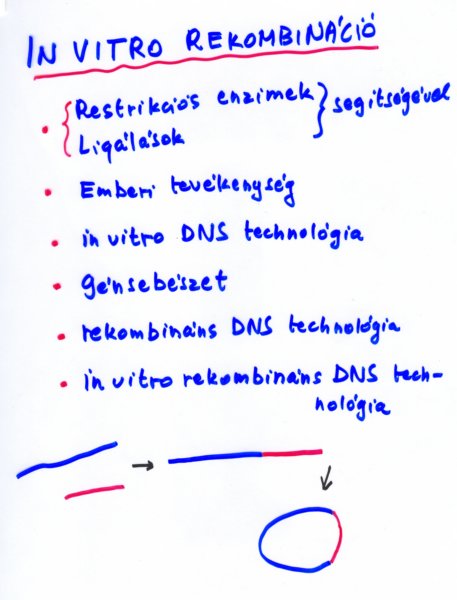 IN VITRO REKOMBINÁCIÓ
• { Restrikciós enzimek } segítségével
Ligálások
• Emberi tevékenység
• in vitro DNS technológia
• génsebészet
• rekombináns DNS technológia
• in vitro rekombináns DNS tech-
nológia